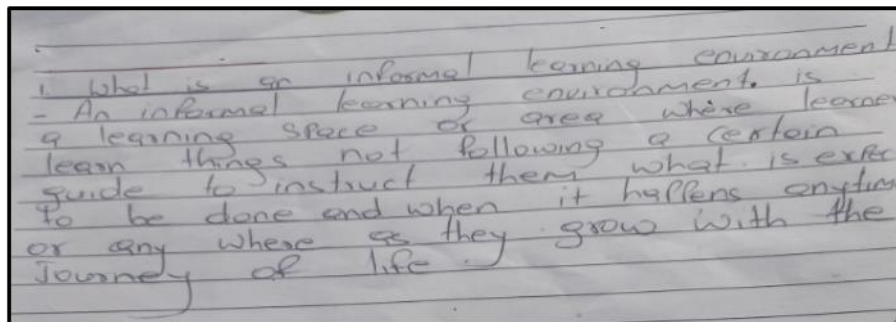 1. What is an informal learning environment
- An informal learning environment. is
a learning space or area where learne
learn things not following a certain
guide to instruct them what is expec
to be done and when it happens anytim
or any where as they grow with the
Journey of life.